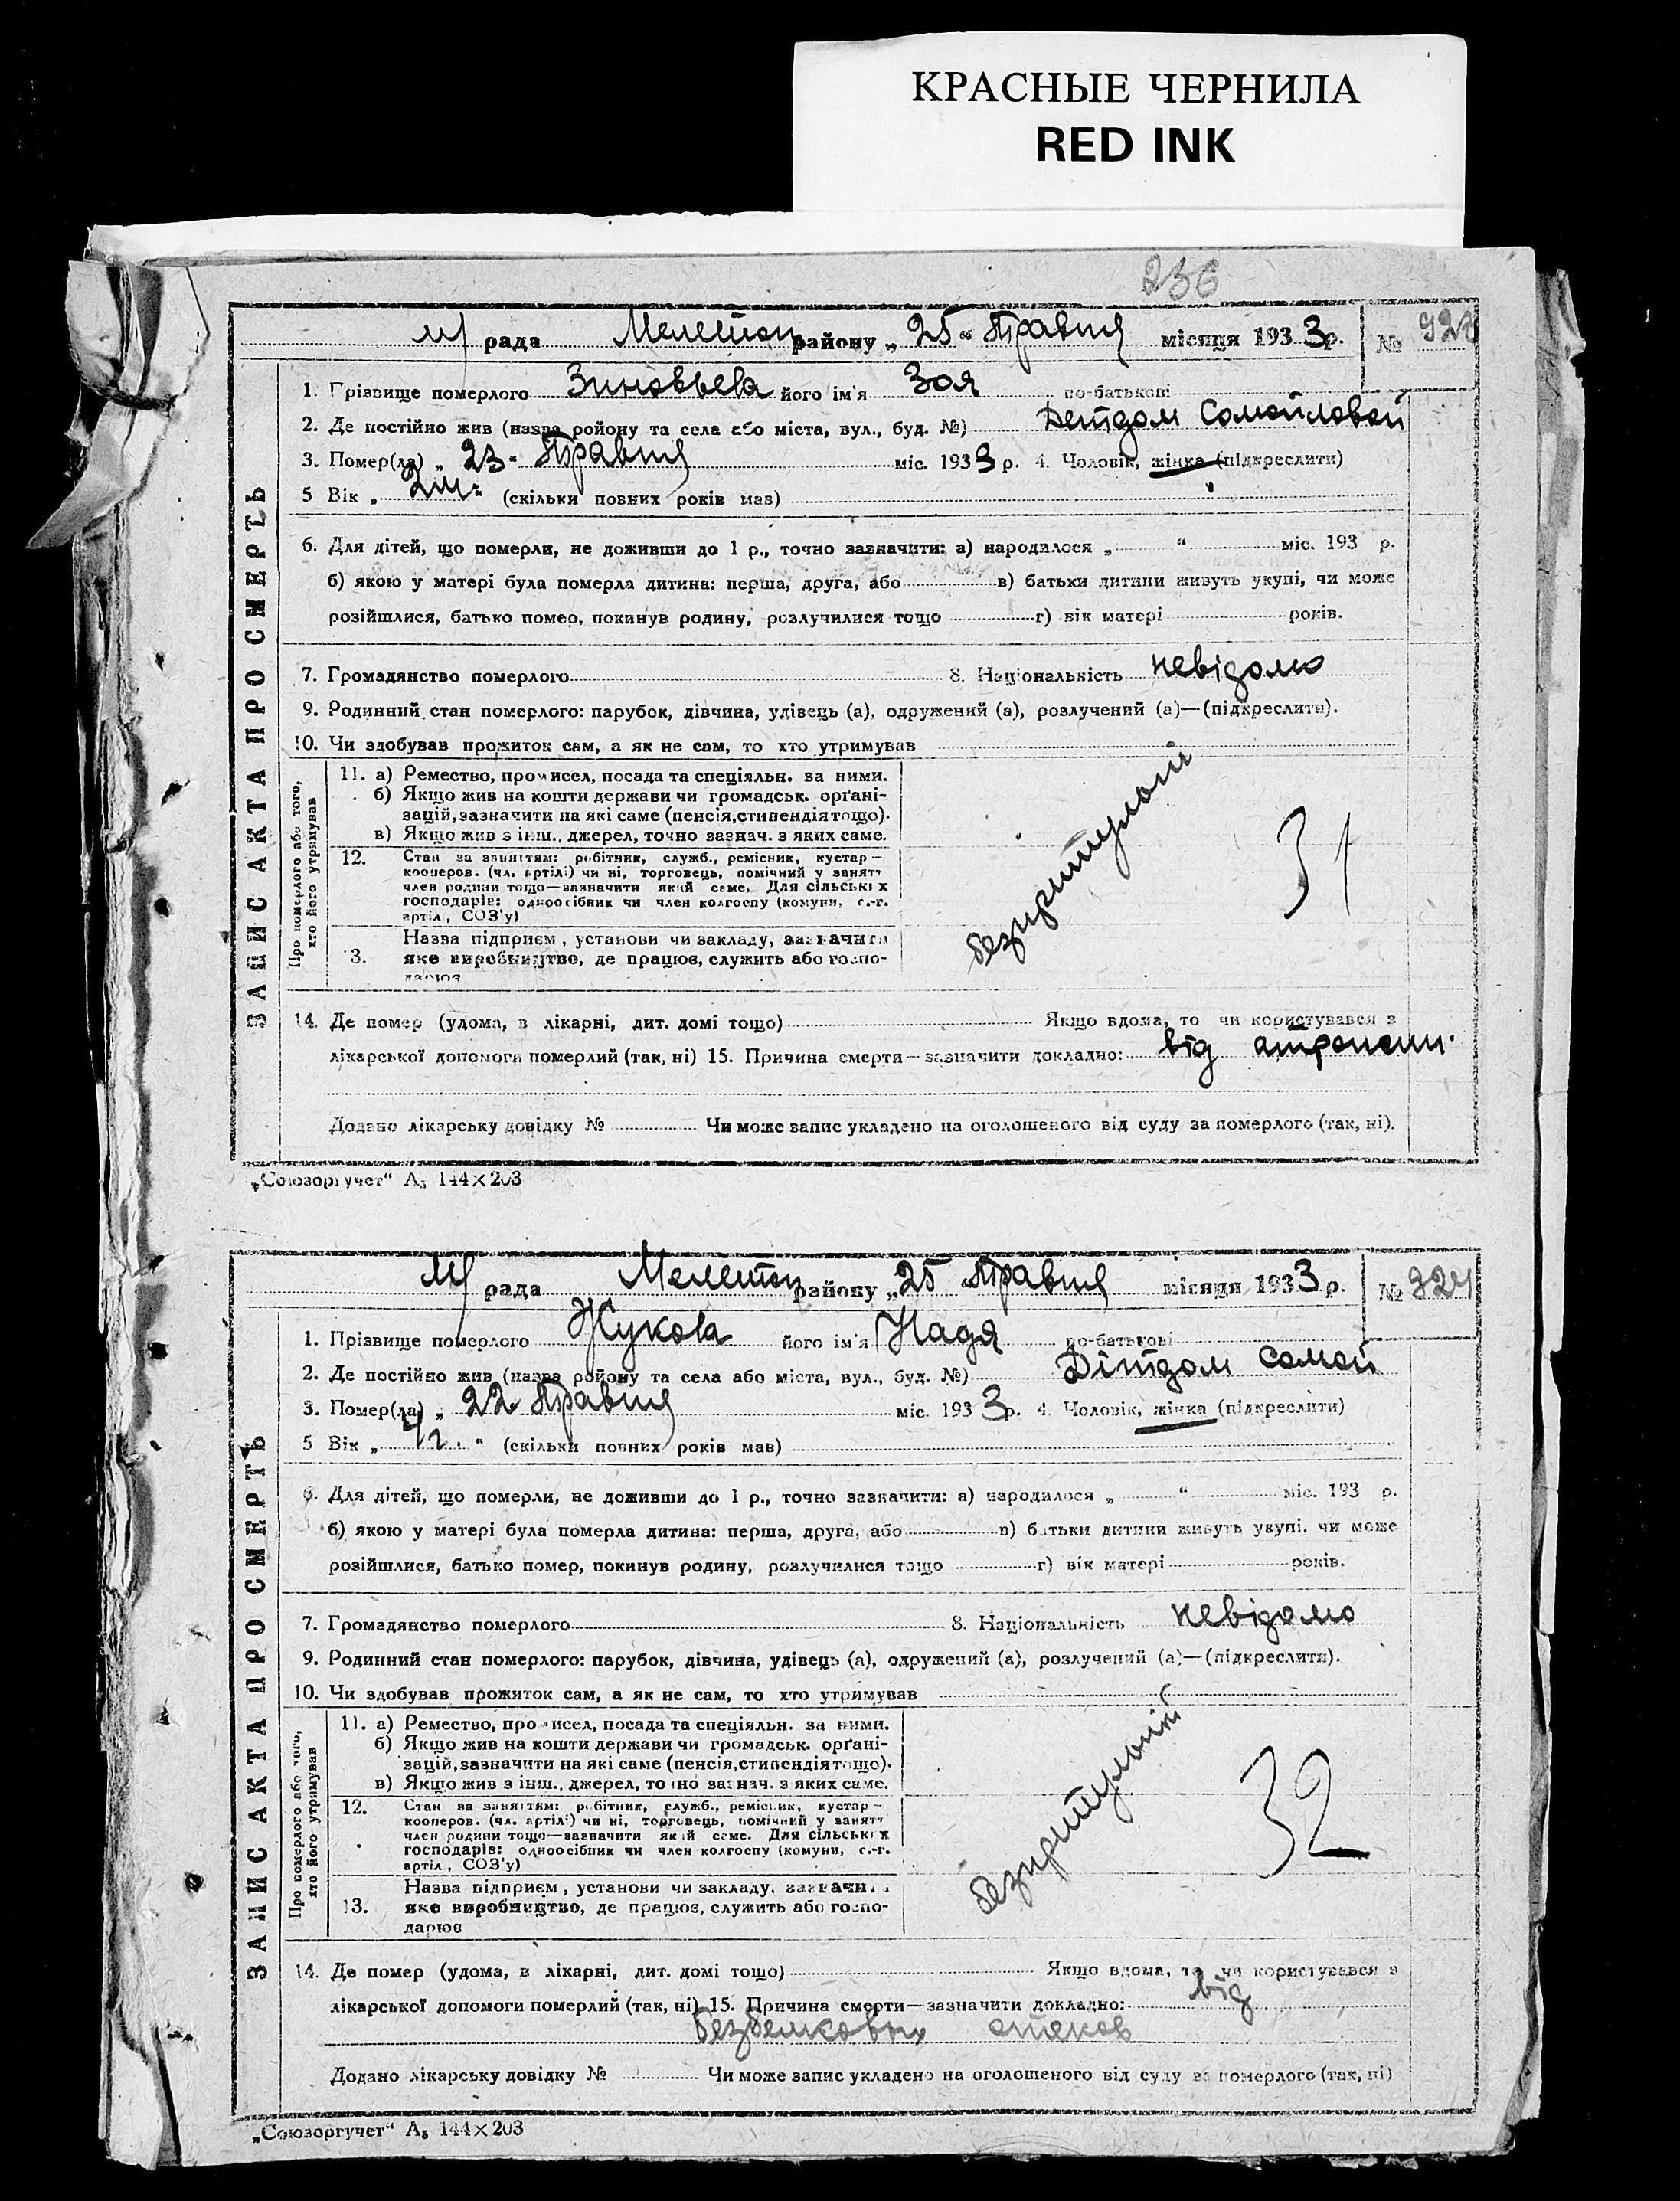 КРАСНЫЕ ЧЕРНИЛА
RED INK
236
м/ рада Мелетоп району „ 25 “ Травня місяця 1933 р. №
ЗАПИС АКТА ПРО СМЕРТЬ
1. Прізвище померлого Зиновьева його ім'я Зоя по-батькові
2. Де постійно жив (назва ройону та села або міста, вул., буд. №) Детдом Самойловой
3. Помер(ла) „ 23 “ Травня міс. 1933 р. 4. Чоловік, жінка (підкреслити)
5 Вік „ 2м. “ (скільки повних років мав)
6. Для дітей, що померли, не доживши до 1 р., точно зазначити: а) народилося „ “ міс. 193 р.
б) якою у матері була померла дитина: перша, друга, або в) батьки дитини живуть укупі, чи може
розійшлися, батько помер, покинув родину, розлучилися тощо г) вік матері років.
7. Громадянство померлого 8. Національність невідомо
9. Родинний стан померлого: парубок, дівчина, удівець (а), одружений (а), розлучений (а)—(підкреслити).
10. Чи здобував прожиток сам, а як не сам, то хто утримував
Про померлого або того, хто його утримував
11. а) Ремество, промисел, посада та спеціяльн. за ними.
б) Якщо жив на кошти держави чи громадськ. орґані-
зацій, зазначити на які саме (пенсія, стипендія тощо).
в) Якщо жив з інш., джерел, точно зазнач. з яких саме.
12. Стан за заняттям: робітник, служб., ремісник, кустар—
кооперов. (чл. артілі) чи ні, торговець, помічний у занятт
член родини тощо—зазначити який саме. Для сільських
господарів: одноосібник чи член колгоспу (комуни, с.-г.
артіл., СОЗ'у)
3. Назва підприєм., установи чи закладу, зазначити
яке виробництво, де працює, служить або госпо-
дарює
безпритульний
31
14. Де помер (удома, в лікарні, дит. домі тощо) Якщо вдома, то чи користувався з
лікарської допомоги померлий (так, ні) 15. Причина смерти—зазначити докладно: від
Додано лікарську довідку № Чи може запис укладено на оголошеного від суду за померлого (так, ні).
„Союзоргучет“ А₅ 144×203
м/ рада Мелетоп району „ 25 “ Травня місяця 1933 р. № 924
ЗАПИС АКТА ПРО СМЕРТЬ
1. Прізвище померлого Жукова його ім'я Надя по-батькові
2. Де постійно жив (назва ройону та села або міста, вул., буд. №) Дітдом Самой
3. Помер(ла) „ 22 Травня міс. 1933 р. 4. Чоловік, жінка (підкреслити)
5 Вік „ 4 г. “ (скільки повних років мав)
6. Для дітей, що померли, не доживши до 1 р., точно зазначити: а) народилося „ “ міс. 193 р.
б) якою у матері була померла дитина: перша, друга, або в) батьки дитини живуть укупі, чи може
розійшлися, батько помер, покинув родину, розлучилися тощо г) вік матері років.
7. Громадянство померлого 8. Національність невідомо
9. Родинний стан померлого: парубок, дівчина, удівець (а), одружений (а), розлучений (а)—(підкреслити).
10. Чи здобував прожиток сам, а як не сам, то хто утримував
Про померлого або того, хто його утримував
11. а) Ремество, промисел, посада та спеціяльн. за ними.
б) Якщо жив на кошти держави чи громадськ. орґані-
зацій, зазначити на які саме (пенсія, стипендія тощо).
в) Якщо жив з інш., джерел, точно зазнач. з яких саме.
12. Стан за заняттям: робітник, служб., ремісник, кустар—
кооперов. (чл. артілі) чи ні, торговець, помічний у занятт
член родини тощо—зазначити який саме. Для сільських
господарів: одноосібник чи член колгоспу (комуни, с.-г.
артіл., СОЗ'у)
13. Назва підприєм., установи чи закладу, зазначи
яке виробництво, де працює, служить або госпо-
дарює
безпритульний
32
14. Де помер (удома, в лікарні, дит. домі тощо) Якщо вдома, то чи користувався з
лікарської допомоги померлий (так, ні) 15. Причина смерти—зазначити докладно: від
безбелковых отеков
Додано лікарську довідку № Чи може запис укладено на оголошеного від суду за померлого (так, ні)
„Союзоргучет“ А₅ 144×203